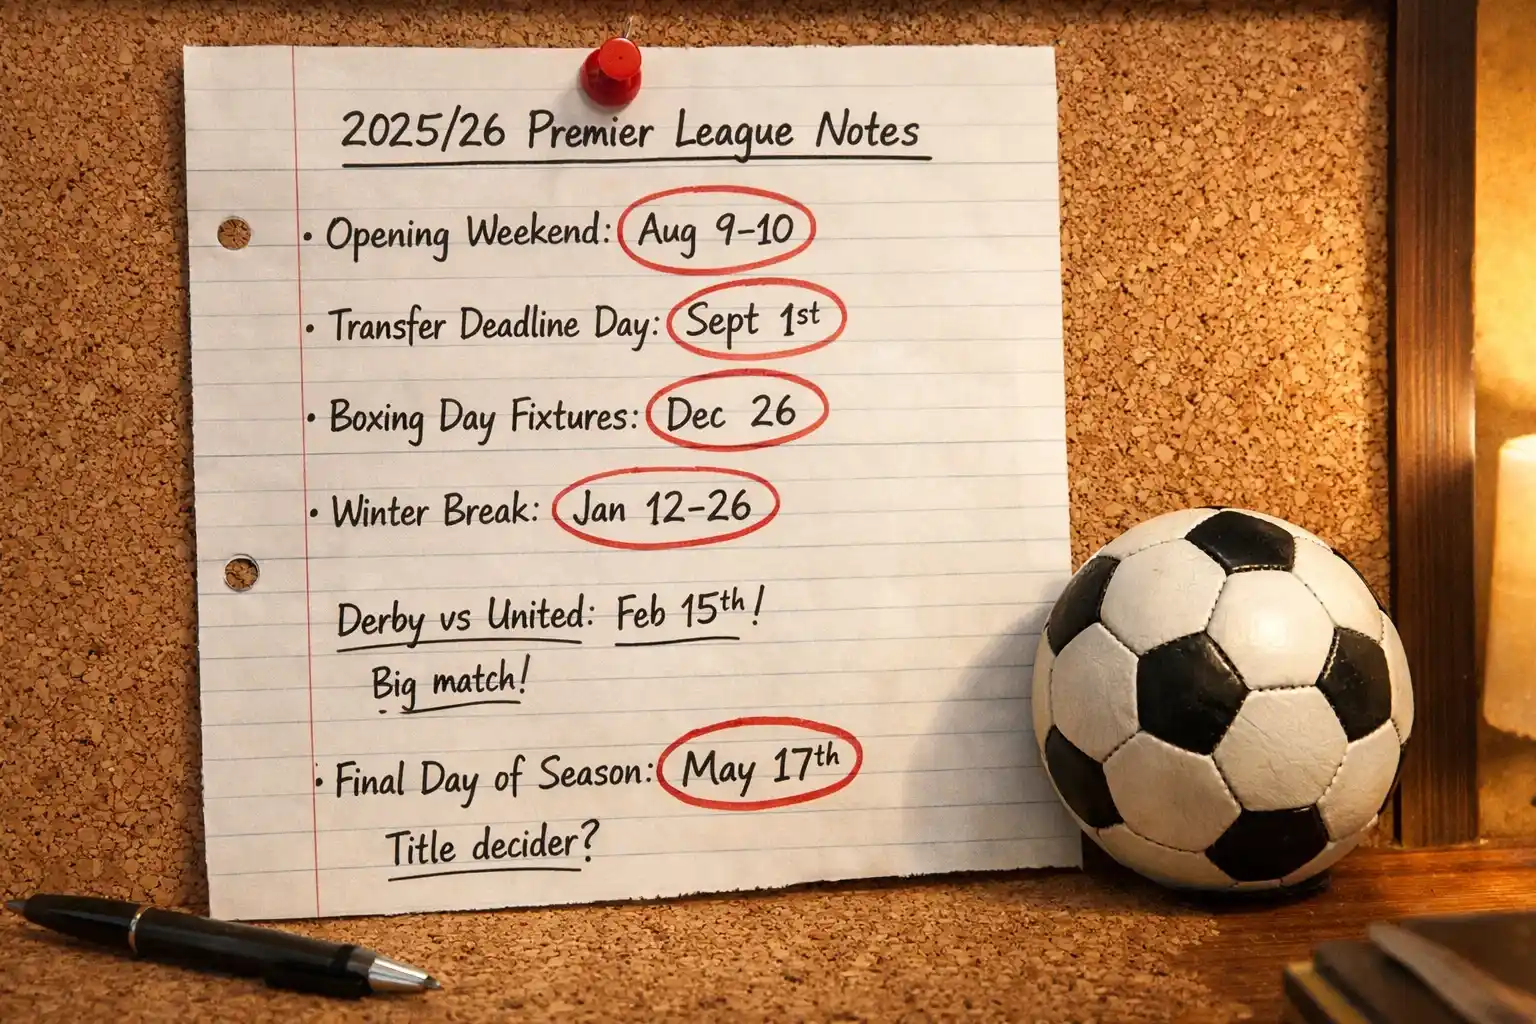 2025/26 Premier League Notes
• Opening Weekend: Aug 9-10
• Transfer Deadline Day: Sept 1st
• Boxing Day Fixtures: Dec 26
• Winter Break: Jan 12-26
Derby vs United: Feb 15th!
Big match!
• Final Day of Season: May 17th
Title decider?